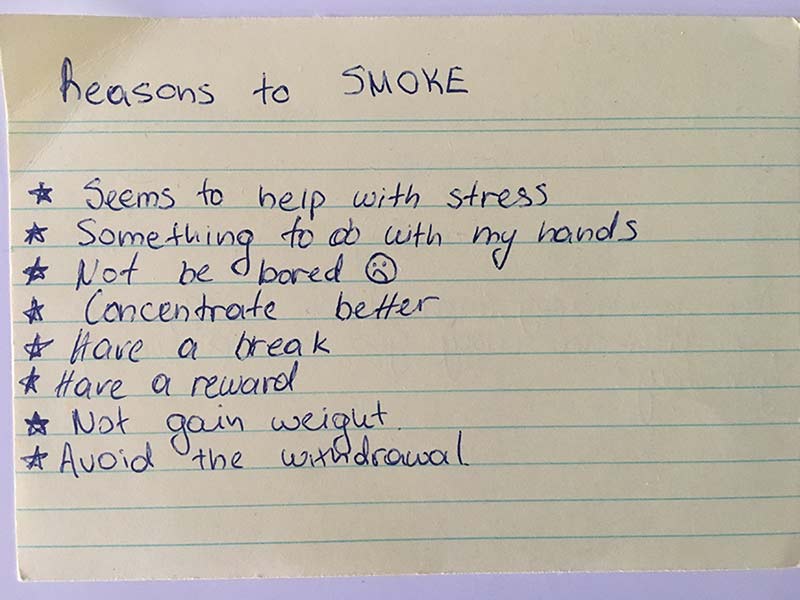 Reasons to SMOKE
★ Seems to help with stress
★ Something to do with my hands
★ Not be bored ☹
★ Concentrate better
★ Have a break
★ Have a reward
★ Not gain weight.
★ Avoid the withdrawal